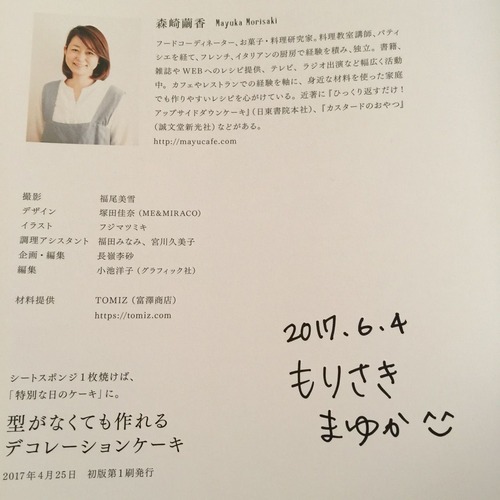 森崎繭香 Mayuka Morisaki
フードコーディネーター、お菓子・料理研究家。料理教室講師、パティ
シエを経て、フレンチ、イタリアンの厨房で経験を積み、独立。書籍、
雑誌やWEBへのレシピ提供、テレビ、ラジオ出演など幅広く活動
中。カフェやレストランでの経験を軸に、身近な材料を使った家庭
でも作りやすいレシピを心がけている。近著に『ひっくり返すだけ！
アップサイドダウンケーキ』（日東書院本社）、『カスタードのおやつ』
（誠文堂新光社）などがある。
http://mayucafe.com
撮影 福尾美雪
デザイン 塚田佳奈（ME&MIRACO）
イラスト フジマツミキ
調理アシスタント 福田みなみ、宮川久美子
企画・編集 長嶺李砂
編集 小池洋子（グラフィック社）
材料提供 TOMIZ（富澤商店）
https://tomiz.com
2017.6.4
もりさき
まゆか
シートスポンジ1枚焼けば、
「特別な日のケーキ」に。
型がなくても作れる
デコレーションケーキ
2017年4月25日 初版第1刷発行